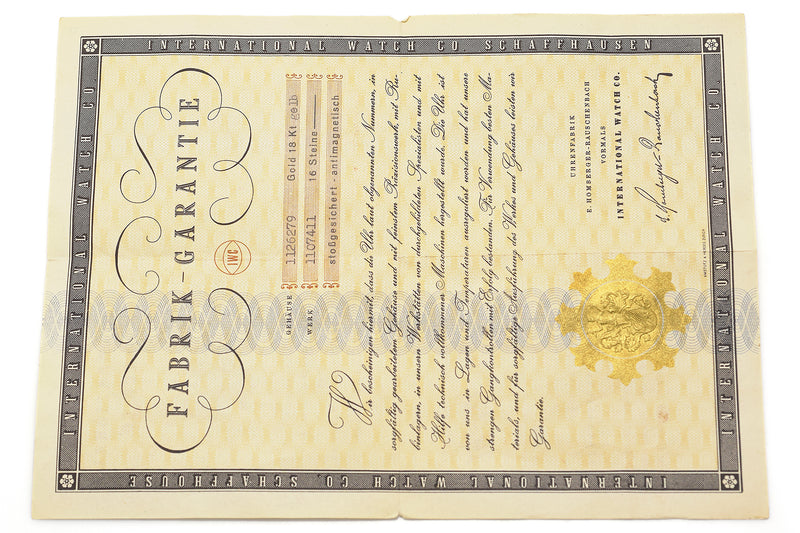 INTERNATIONAL WATCH CO.
INTERNATIONAL WATCH CO. SCHAFFHAUSEN
INTERNATIONAL WATCH CO.
INTERNATIONAL WATCH CO. SCHAFFHOUSE
FABRIK-GARANTIE
IWC
GEHÄUSE 1126279 Gold 18 Kt gelb
WERK 1107411 16 Steine
stoßgesichert · antimagnetisch
Wir bescheinigen hiermit, dass die Uhr laut obgenannten Nummern, in
sorgfältig gearbeitetem Gehäuse und mit feinstem Präzisionswerk, mit Ru-
binlagern, in unsern Werkstätten von durchgebildeten Spezialisten und mit
Hilfe technisch vollkommener Maschinen hergestellt wurde. Die Uhr ist
von uns in Lagen und Temperaturen ausreguliert worden und hat unsere
strengen Gangkontrollen mit Erfolg bestanden. Für Verwendung besten Ma-
terials, und für sorgfältige Ausführung des Werkes und Gehäuses leisten wir
Garantie.
UHRENFABRIK
E. HOMBERGER-RAUSCHENBACH
VORMALS
INTERNATIONAL WATCH CO.
E. Homberger-Rauschenbach